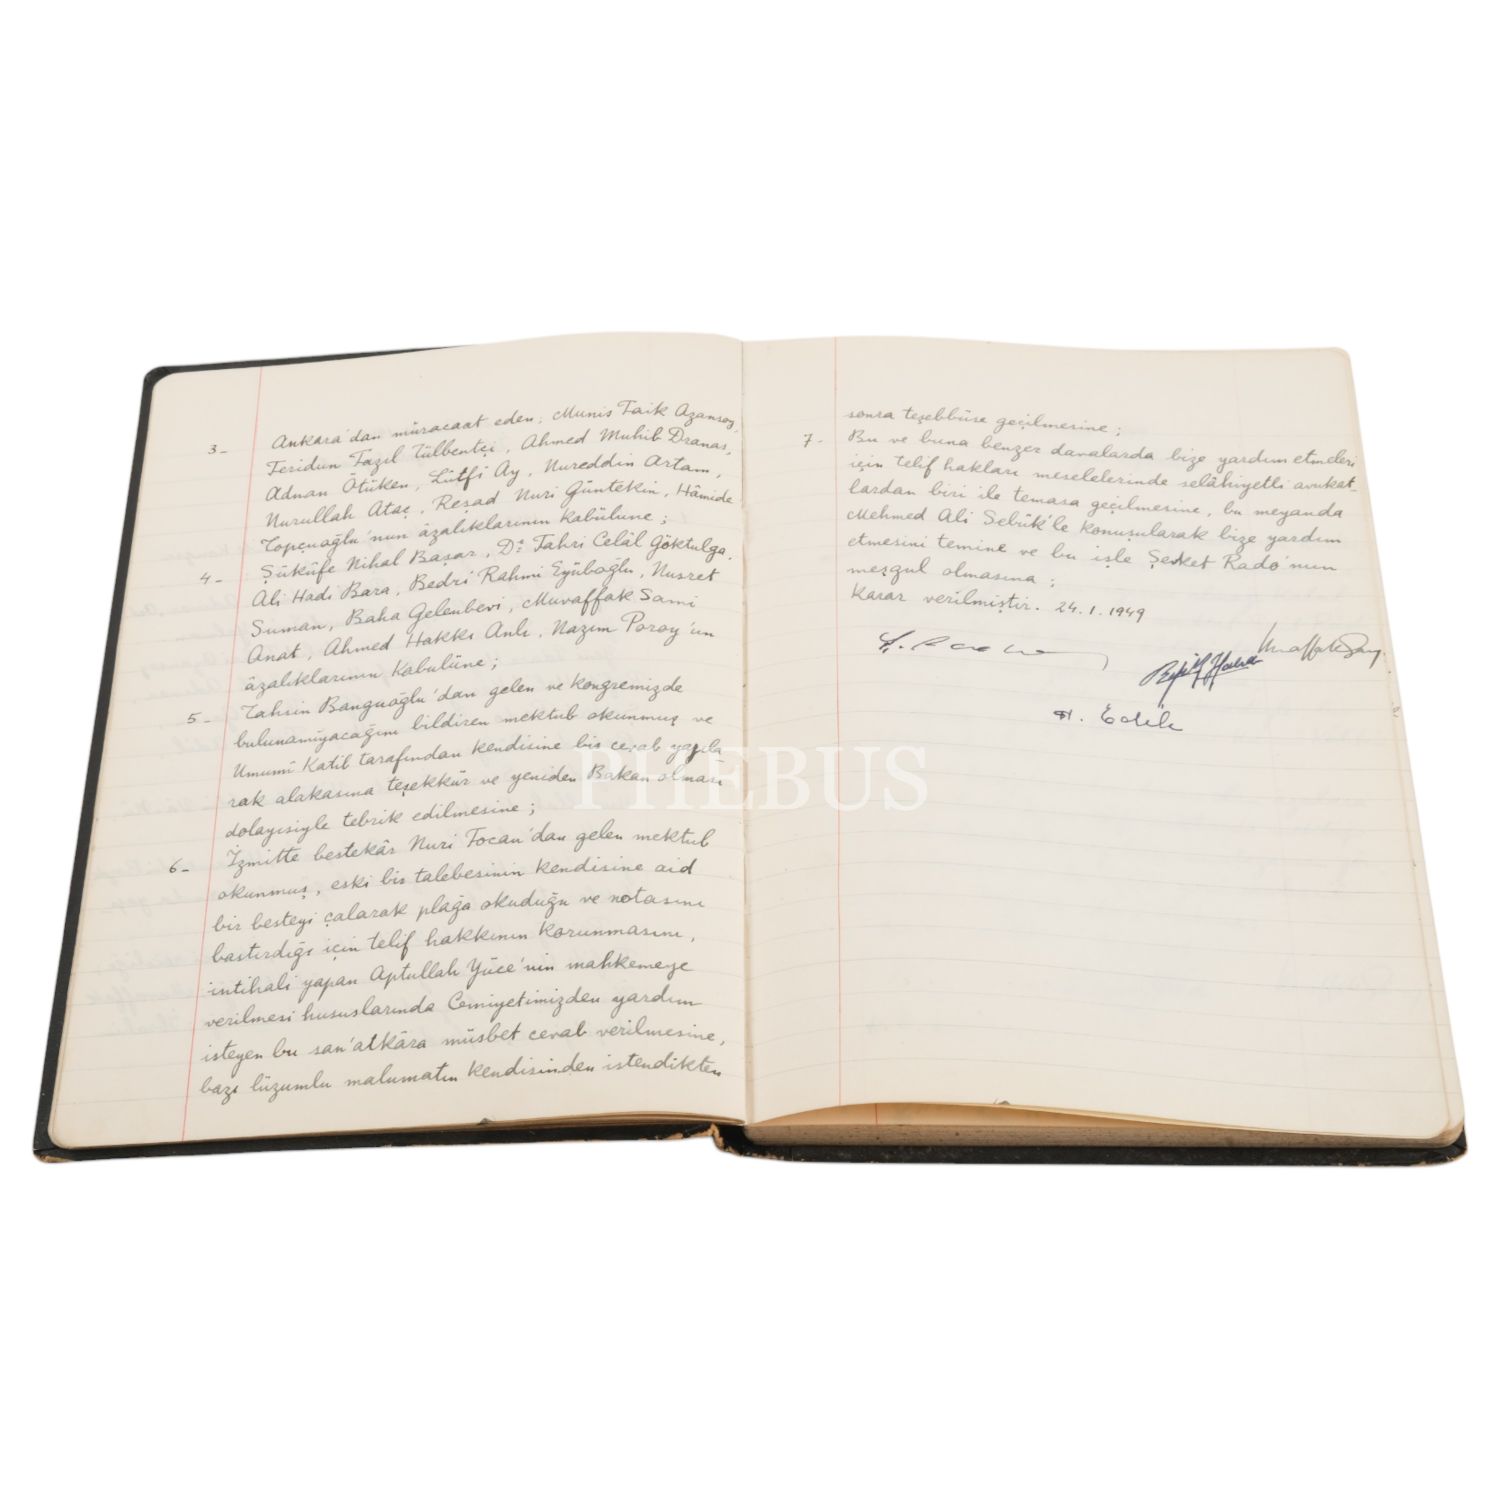 3- Ankara'dan müracaat eden; Munis Faik Ozansoy,
Feridun Fazıl Tülbentçi, Ahmed Muhib Dranas,
Adnan Ötüken, Lûtfi Ay, Nureddin Artam,
Nurullah Ataç, Reşad Nuri Güntekin, Hâmide
Topçuoğlu'nun âzalıklarının kabûlune;
4- Şükûfe Nihal Başar, Dr. Fahri Celâl Göktulga,
Ali Hadi Bara, Bedri Rahmi Eyüboğlu, Nusret
Suman, Baha Gelenbevi, Muvaffak Sami
Anat, Ahmed Hakkı Anlı, Nazım Poroy'un
âzalıklarının kabulüne;
5- Tahsin Banguoğlu'dan gelen ve kongremizde
bulunamıyacağını bildiren mektub okunmuş ve
Umumî Kâtib tarafından kendisine bir cevab yazıla
rak alakasına teşekkür ve yeniden Bakan olması
dolayısiyle tebrik edilmesine;
6- İzmitte bestekâr Nuri Focan'dan gelen mektub
okunmuş, eski bir talebesinin kendisine aid
bir besteyi çalarak plağa okuduğu ve notasını
bastırdığı için telif hakkının korunmasını,
intihali yapan Aptullah Yüce'nin mahkemeye
verilmesi hususlarında Cemiyetimizden yardım
isteyen bu san'atkâra müsbet cevab verilmesine,
bazı lüzumlu malumatın kendisinden istendikten
sonra teşebbüse geçilmesine;
7- Bu ve buna benzer davalarda bize yardım etmeleri
için telif hakları meselelerinde selâhiyetli avukat-
lardan biri ile temasa geçilmesine, bu meyanda
Mehmed Ali Sebük'le konuşularak bize yardım
etmesini temine ve bu işle Şevket Rado'nun
meşgul olmasına;
Karar verilmiştir. 24.1.1949
H. Edib
PHEBUS